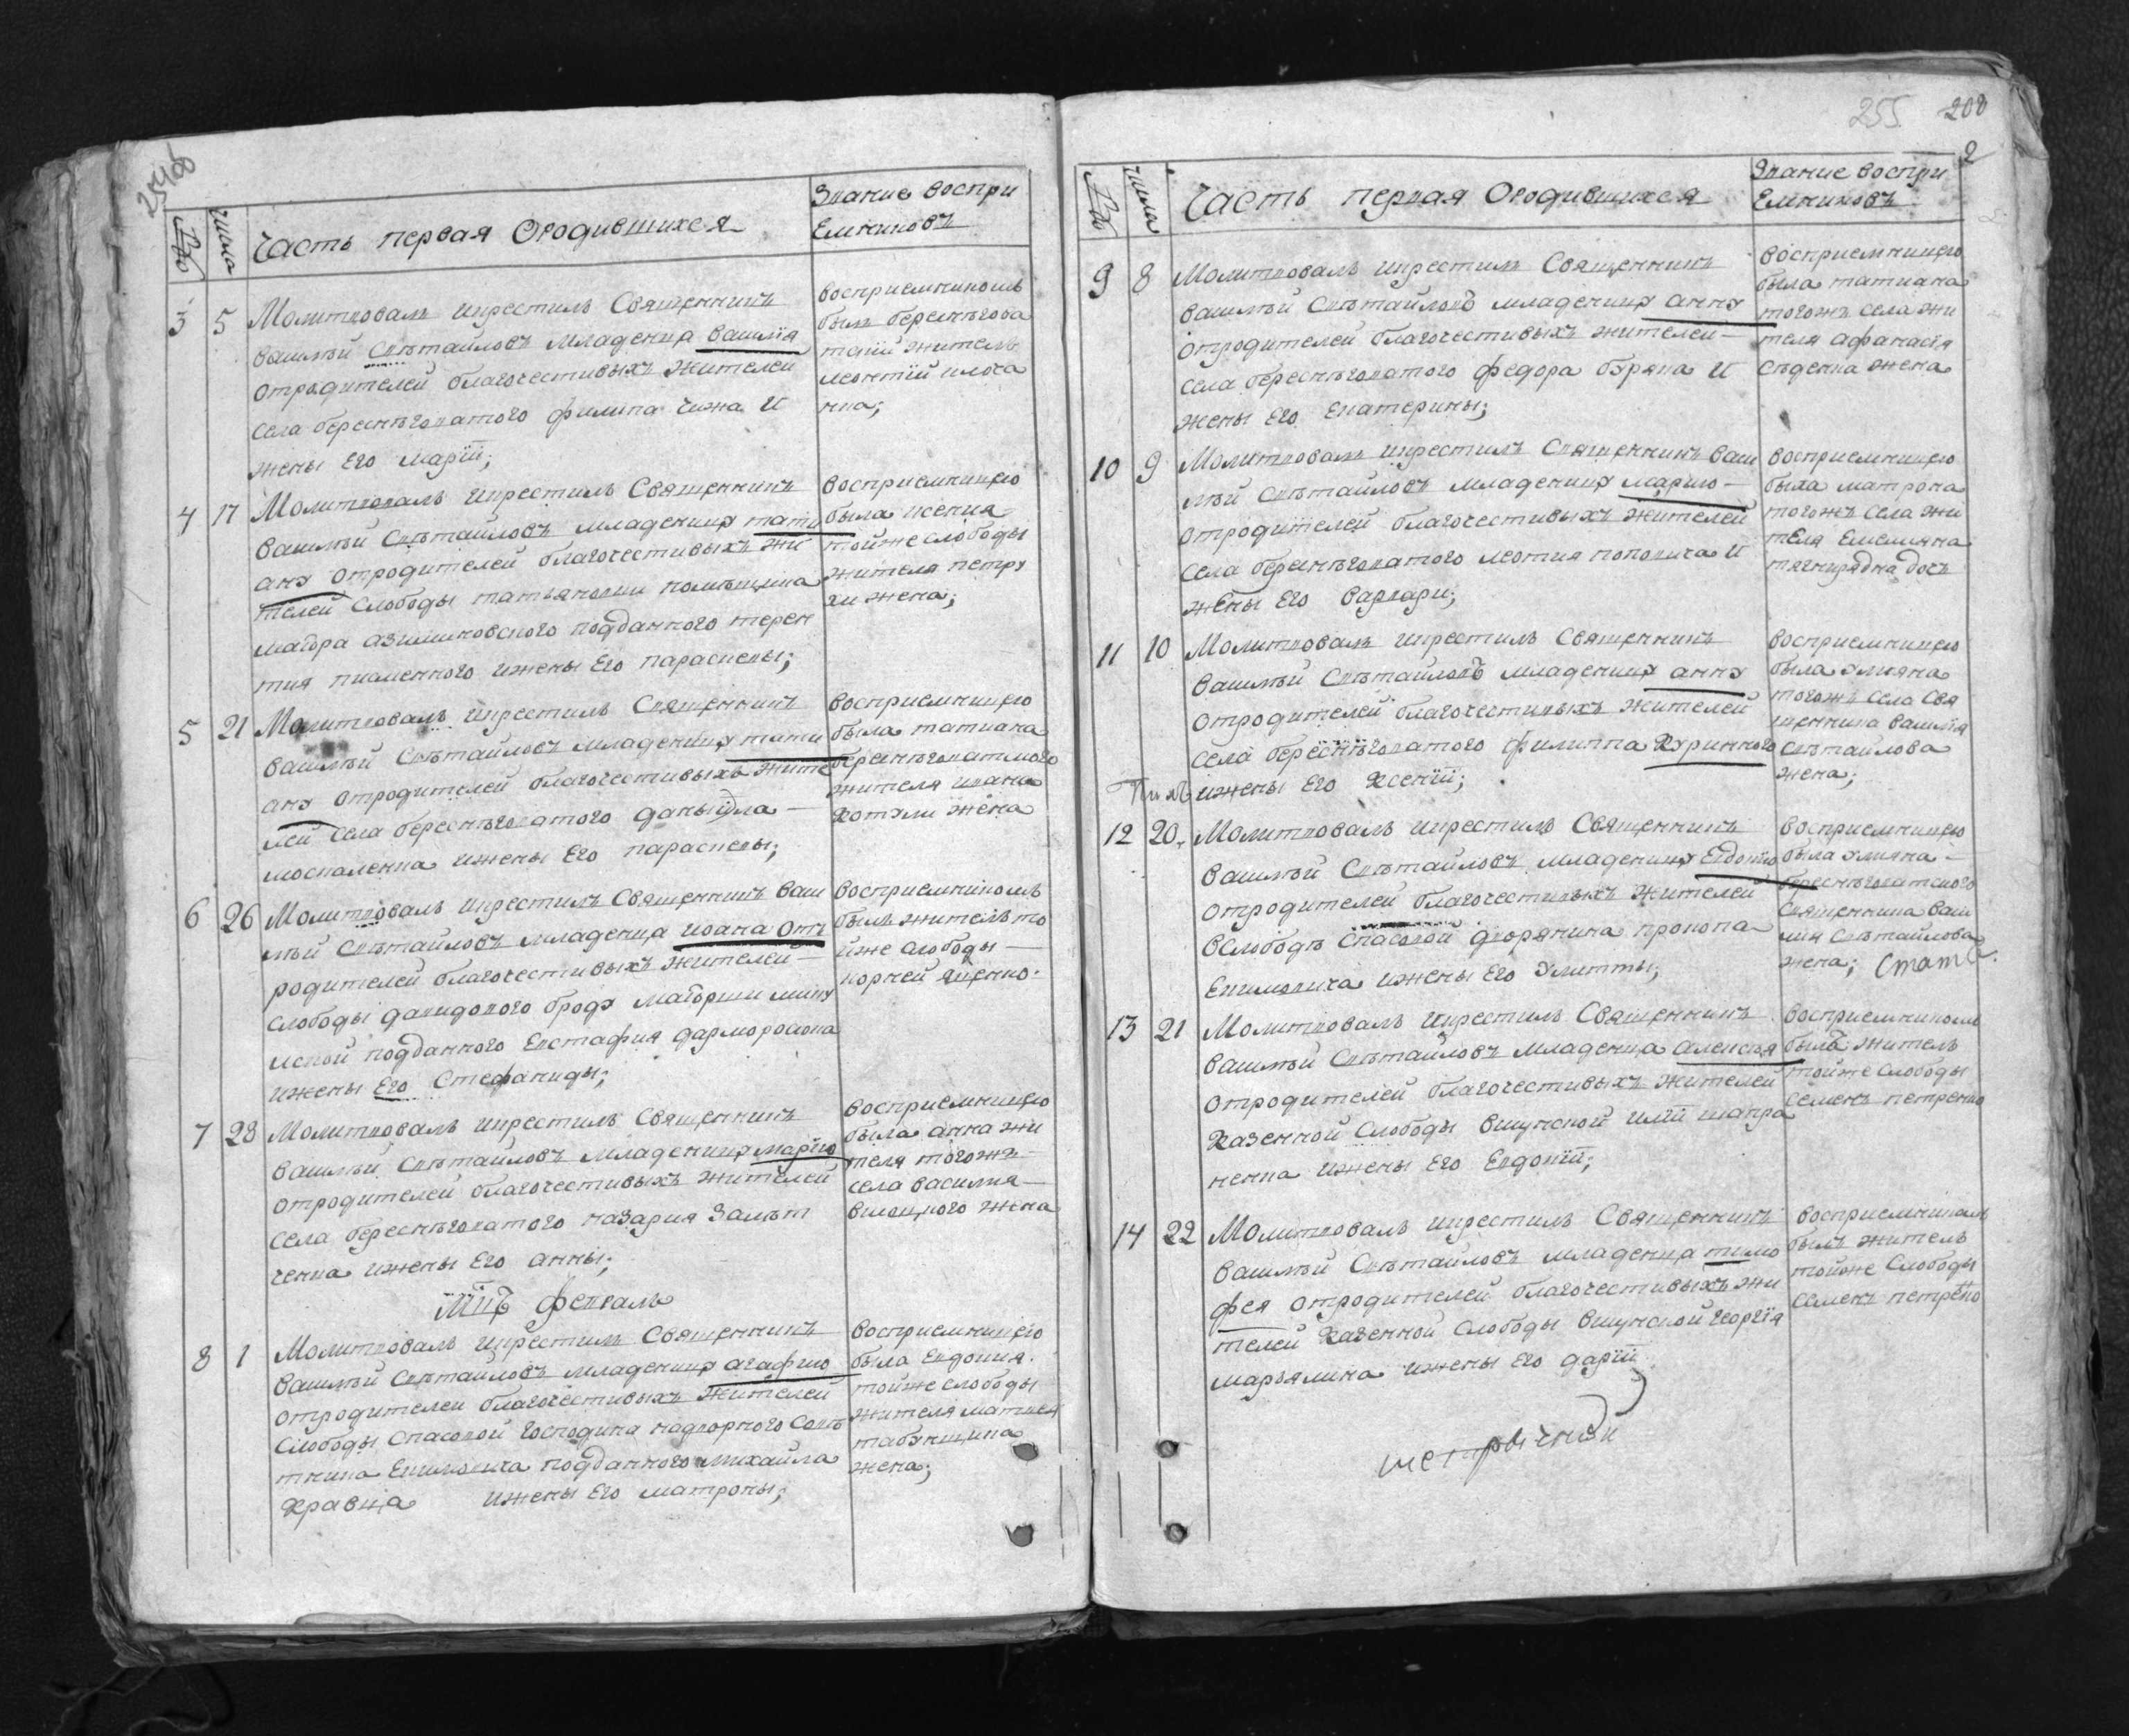 254об
Число
Часть первая Ородившихся
Звание воспри
Емниковъ
3 5 Молитвовалъ икрестилъ Священникъ
василій Свѣтайловъ младенца василія
отродителей благочестивыхъ жителей
села береснѣговатого филипа чижа И
жены Его Маріи;
восприемникомъ
былъ береснѣгова
такій житель
леонтій
4 17 Молитвовалъ икрестилъ Священникъ
василій Свѣтайловъ младеницу тати
ану отродителей благочестивыхъ жи
телей Слободы татьяновки помѣщика
маіора подданного терен
тия писменного ижены Его параскевы;
восприемницею
была ксения
тойже слободы
жителя петру
хи жена;
5 21 Молитвовалъ икрестилъ Священникъ
василій Свѣтайловъ младеницу тати
ану отродителей благочестивыхъ жите
лей Села береснѣговатого даныила
москаленка ижены Его параскевы;
восприемницею
была татиана
береснѣговатского
жителя ивана
жена
6 26 Молитвовалъ икрестилъ Священникъ васи
лій Свѣтайловъ младенца иоана Отъ
родителей благочестивыхъ жителей
Слободы давидового броду маіорши
подданного Евстафия
ижены Его Стефаниды;
восприемникомъ
былъ житель то
йже слободы
корней яценко.
7 28 Молитвовалъ икрестилъ Священникъ
василій Свѣтайловъ младеницу марію
отродителей благочестивыхъ жителей
села береснѣговатого назария
ченка ижены Его анны;
восприемницею
была анна жи
теля тогожъ
села василия
жена
Мцъ февраль
8 1 Молитвовалъ икрестилъ Священникъ
василій Свѣтайловъ младеницу агафию
отродителей благочестивыхъ жителей
Слободы Спасовой господина надворного Совѣ
тника Екимовича подданного михайла
Кравца ижены Его матроны;
восприемницею
была Евдокия
тойже слободы
жителя матвея
табунщика
жена;
255 208
2
числа
Часть первая Ородившихся
Звание воспри
Емниковъ
9 8 Молитвовалъ икрестилъ Священникъ
василій Свѣтайловъ младеницу анну
отродителей благочестивыхъ жителей
села береснѣговатого федора буряка И
жены Его Екатерины;
восприемницею
была татиана
тогожъ села жи
теля афанасія
жена
10 9 Молитвовалъ икрестилъ Священникъ васи
лій Свѣтайловъ младеницу марию
отродителей благочестивыхъ жителей
села береснѣговатого леотия поповича И
жены Его варвари;
восприемницею
была матрона
тогожъ села жи
теля Емелияна
дочь
11 10 Молитвовалъ икрестилъ Священникъ
василій Свѣтайловъ младеницу анну
отродителей благочестивыхъ жителей
села береснѣговатого филиппа Куринного
ижены Его Ксеніи;
восприемницею
была улияна
тогожъ села свя
щенника василія
свѣтайлова
жена;
12 20. Молитвовалъ икрестилъ Священникъ
василій Свѣтайловъ младеницу Евдокію
отродителей благочестивыхъ жителей
вслободѣ Спасовой дворянина прокопа
Екимовича ижены Его Улитты;
восприемницею
была улияна
береснѣговатского
священника васи
лия свѣтайлова
жена; Стата
13 21 Молитвовалъ икрестилъ Священникъ
василій Свѣтайловъ младенца алексѣя
отродителей благочестивыхъ жителей
Казенной слободы висунской иліи шапра
ненка ижены Его Евдокіи;
восприемникомъ
былъ житель
тойже слободы
семенъ петренко
14 22 Молитвовалъ икрестилъ Священникъ
василій Свѣтайловъ младенца тимо
фея отродителей благочестивыхъ жи
телей Казенной Слободы висунской георгія
ижены Его даріи
восприемникомъ
былъ житель
тойже Слободы
семенъ петренко